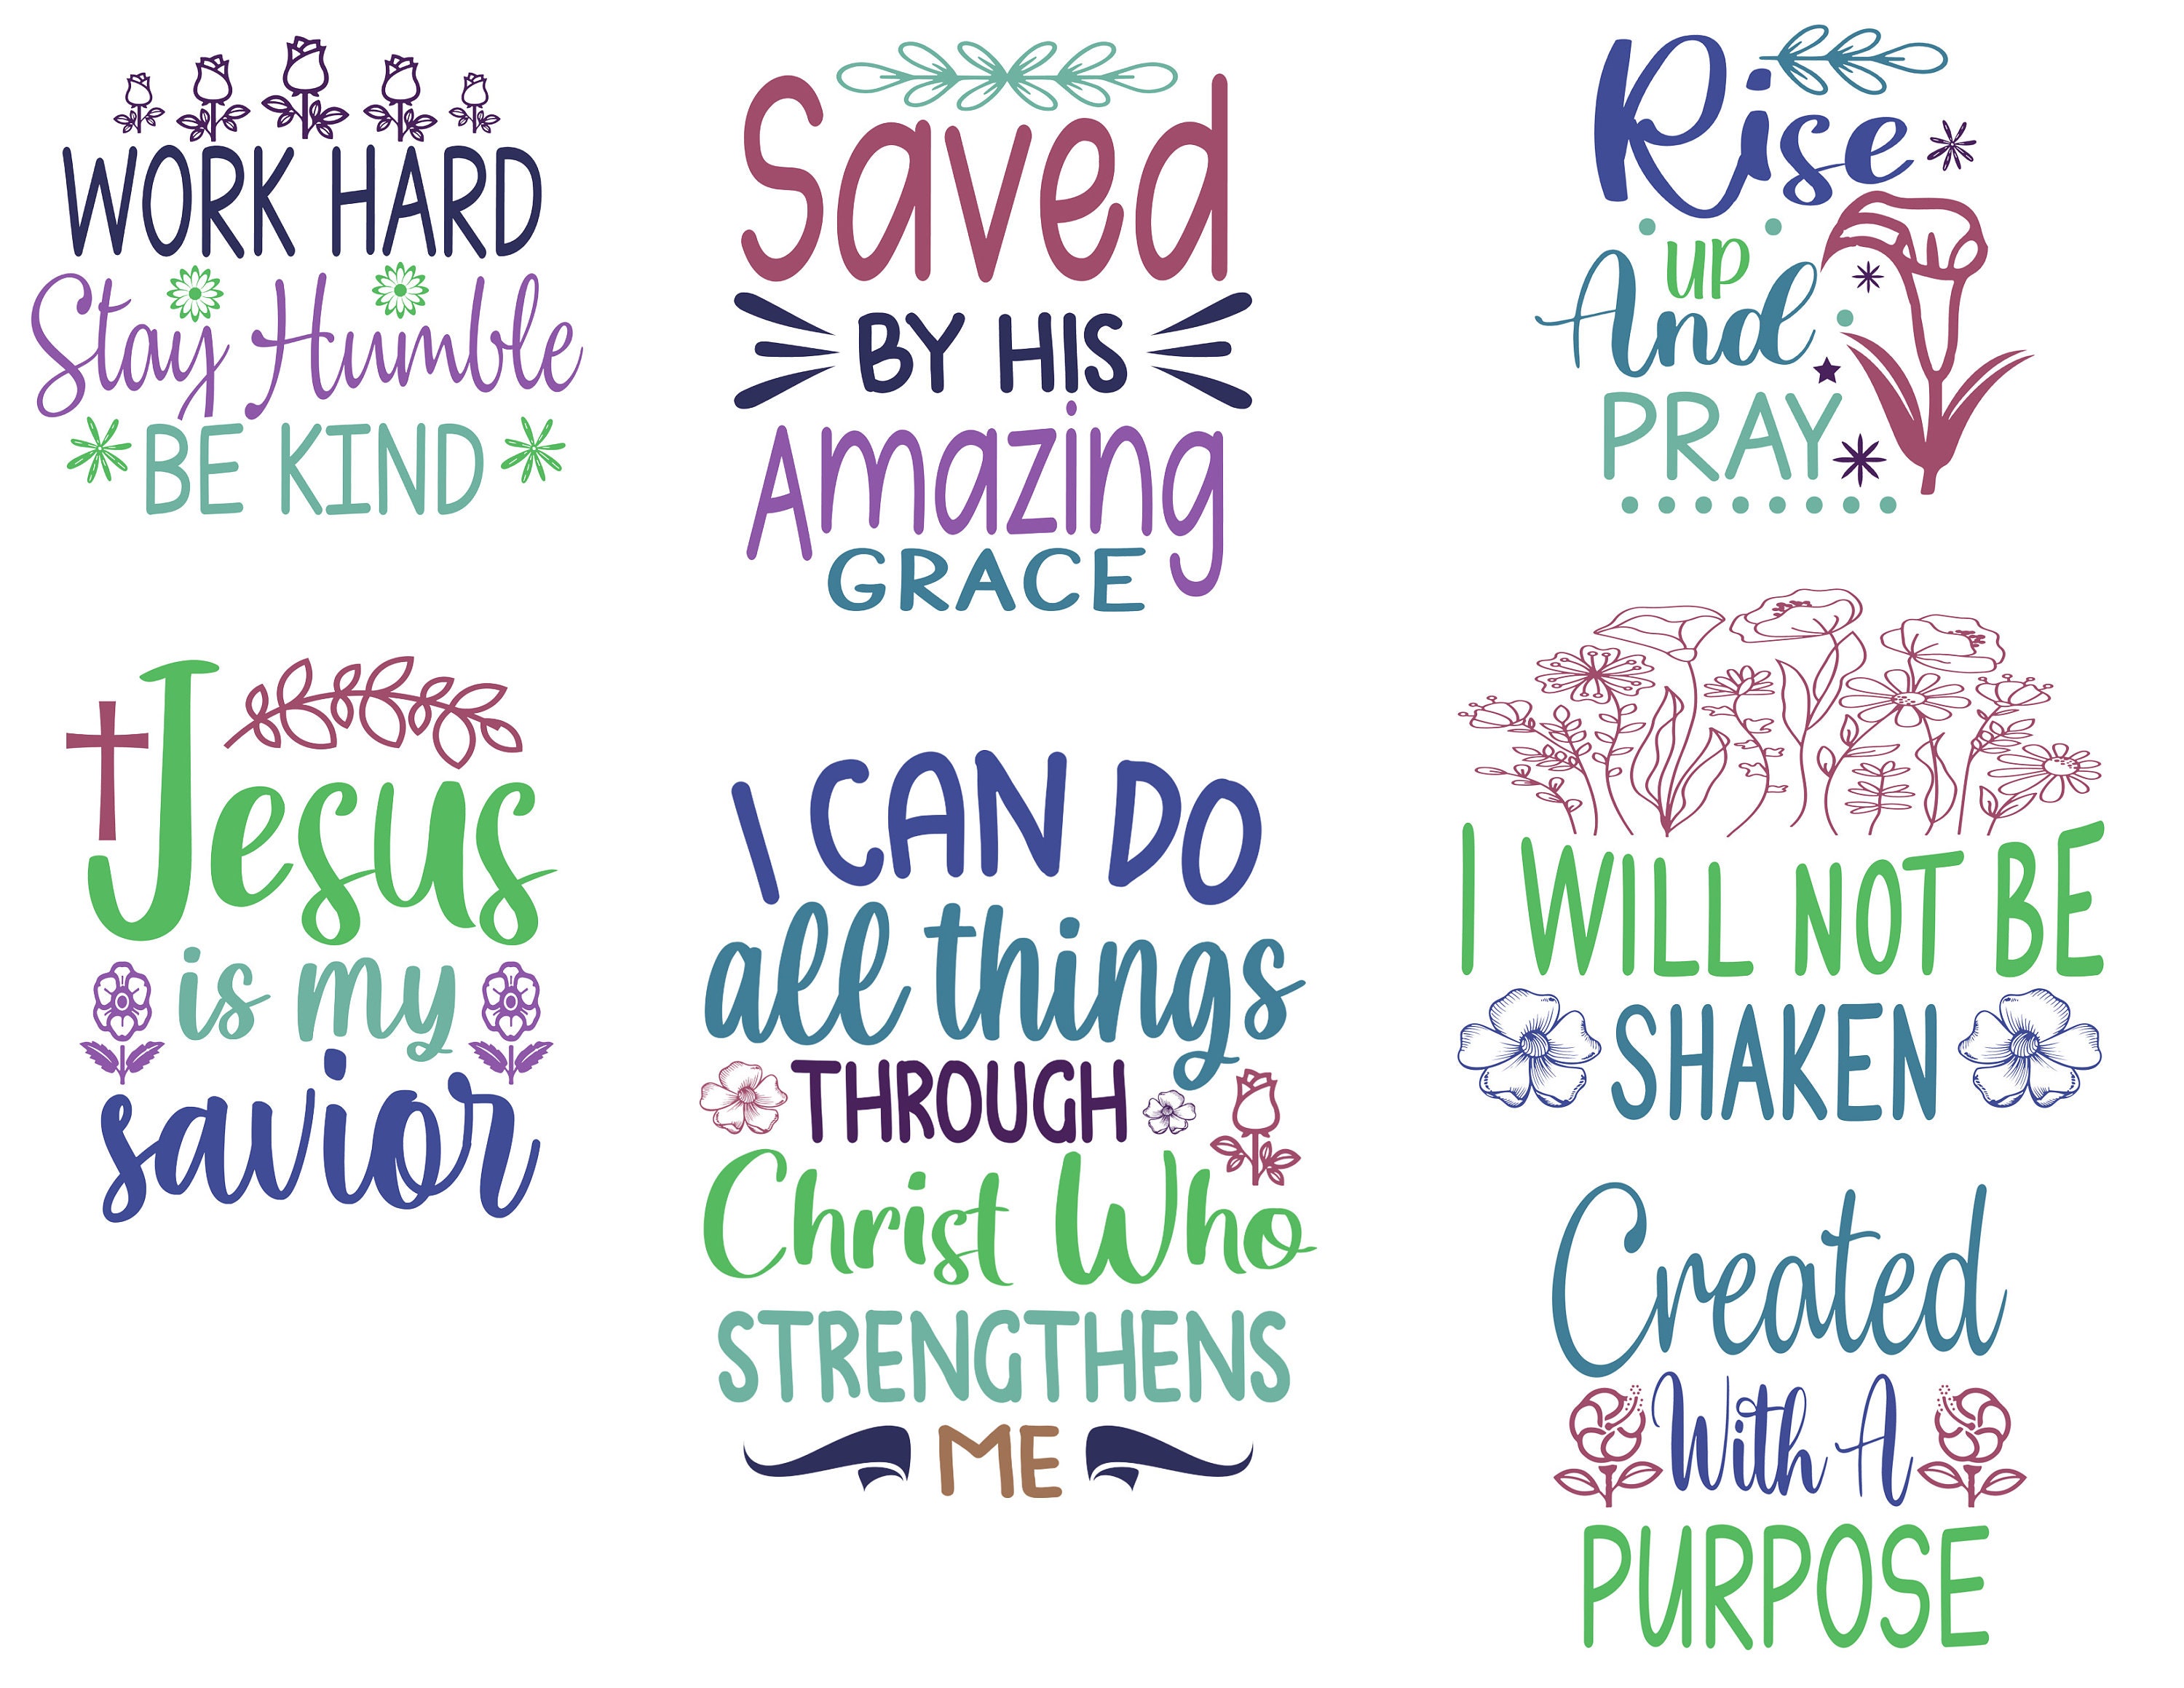 WORK HARD
Stay Humble
BE KIND
Saved
BY HIS
Amazing
GRACE
Rise
up
And
PRAY
Jesus
is my
savior
I CAN DO
all things
THROUGH
Christ Who
STRENGTHENS
ME
I WILL NOT BE
SHAKEN
Created
With A
PURPOSE